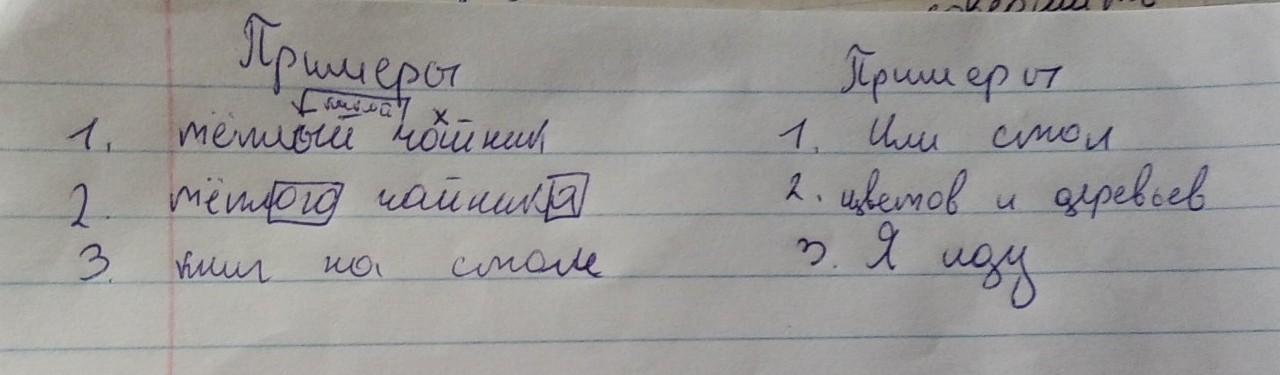 Примеры
какой
1. тёплый чайник
2. тёплого чайника
3. книг на столе
Примеры
1. Или стол
2. цветов и деревьев
3. Я иду